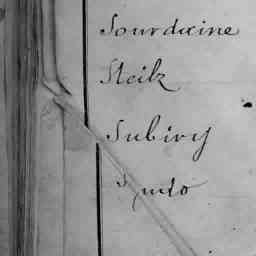 Sourdicine
Steilz
Subiry